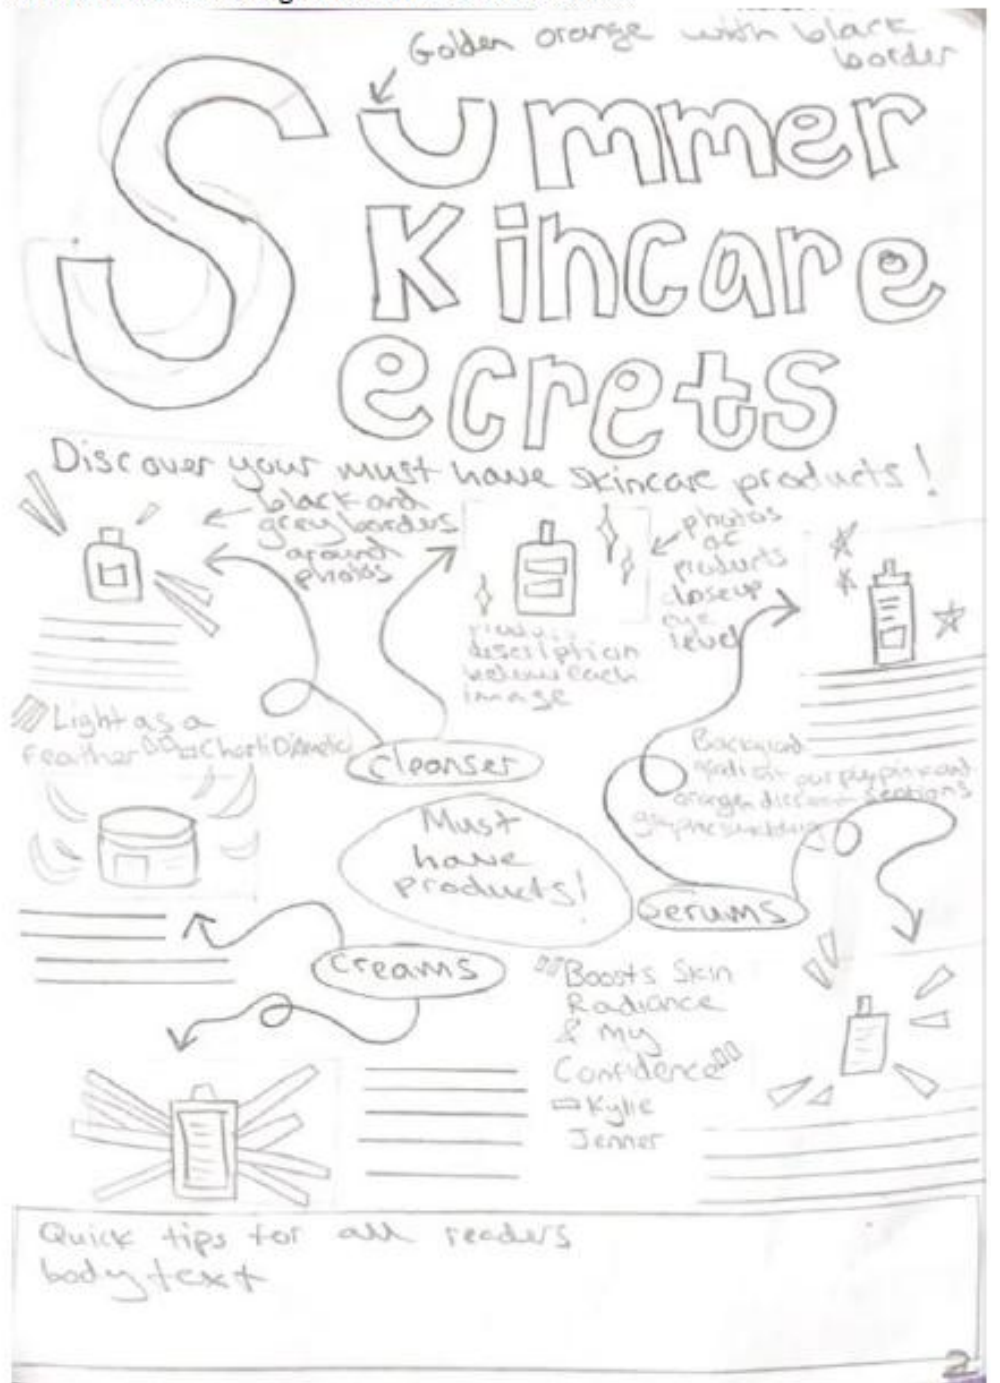 Golden orange with black
border
Summer
Skincare
Secrets
Discover your must have skincare products!
black and
grey borders
around
photos
photos
of
products
closeup
eye
level
description
below each
image
Light as a
feather Charli D'Amelio
cleanser
Must
have
products!
Serums
Creams
Boosts Skin
Radiance
& My
Confidence
Kylie
Jenner
Quick tips for all readers
body text
2